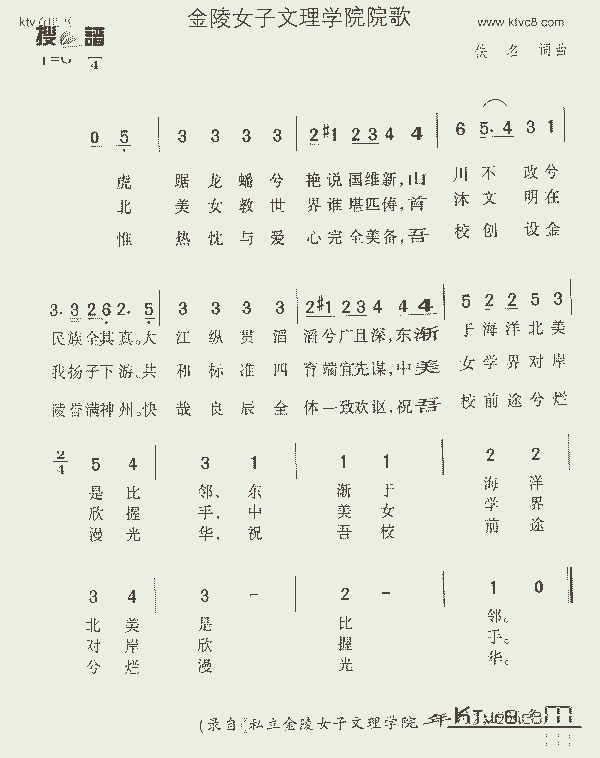 金陵女子文理学院院歌
www.ktvc8.com
搜谱
1=G 4
佚 名 词曲
0 5 3 3 3 3 2 #1 2 3 4 4 6 5. 4 3 1
虎 踞龙蟠兮 艳说国维新,山 川不改兮
北 美女教世 界谁堪匹俦,首 沐文明在
惟 热忱与爱 心完全美备,吾 校创设金
3. 3 2 6 2. 5 3 3 3 3 2 #1 2 3 4 4 4. 5 2 2 5 3
民族全其真。大 江纵贯滔 滔兮广且深,东渐 于海洋北美
我扬子下游。共 和标准四 育端宜先谋,中美 女学界对岸
陵誉满神州。快 哉良辰全 体一致欢讴,祝吾 校前途兮烂
2/4 5 4 3 1 1 1 2 2
是比 邻,东 渐于 海洋
欣握 手,中 美女 学界
漫光 华,祝 吾校 前途
3 4 3 - 2 - 1 0
北美 是 比 邻。
对岸 欣 握 手。
兮烂 漫 光 华。
(录自《私立金陵女子文理学院